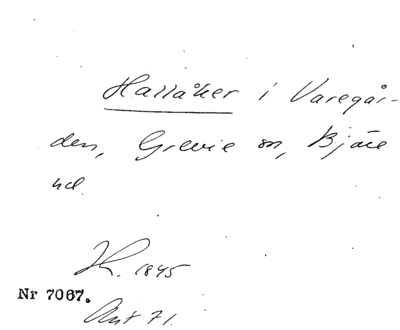 Hallåker i Varegår-
den, Grevie sn, Bjäre
hd.
H. 1845
Nr 7067.
Akt 71.